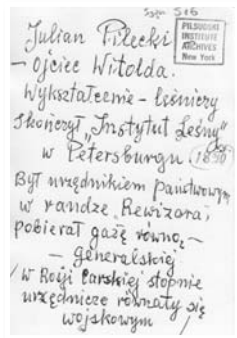 Sygn 516
PILSUDSKI
INSTITUTE
ARCHIVES
New York
Julian Pilecki
– ojciec Witolda.
Wykształcenie – leśniczy
skończył „Instytut Leśny"
w Petersburgu (1890)
Był urzędnikiem państwowym
w randze „Rewizora",
pobierał gażę równą –
– generalskiej
/w Rosji Carskiej stopnie
urzędnicze równały się
wojskowym /